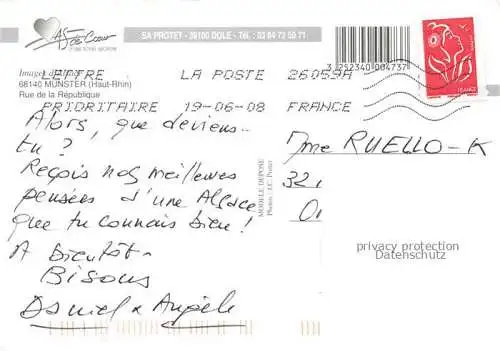 As de Cœur
SA PROTET - 39100 DOLE - Tél. : 03 84 72 55 71
3 252340 004737
Images
68140 MUNSTER (Haut-Rhin)
Rue de la République
LETTRE LA POSTE 26059A
PRIORITAIRE 19-06-08 FRANCE
FRANCE
Alors, que deviens-
tu ?
Reçois nos meilleures
pensées d'une Alsace
que tu connais bien !
A bientôt.
Bisous
Daniel & Angèle
MODELE DEPOSE
Mme RUELLO-K
32
privacy protection
Datenschutz